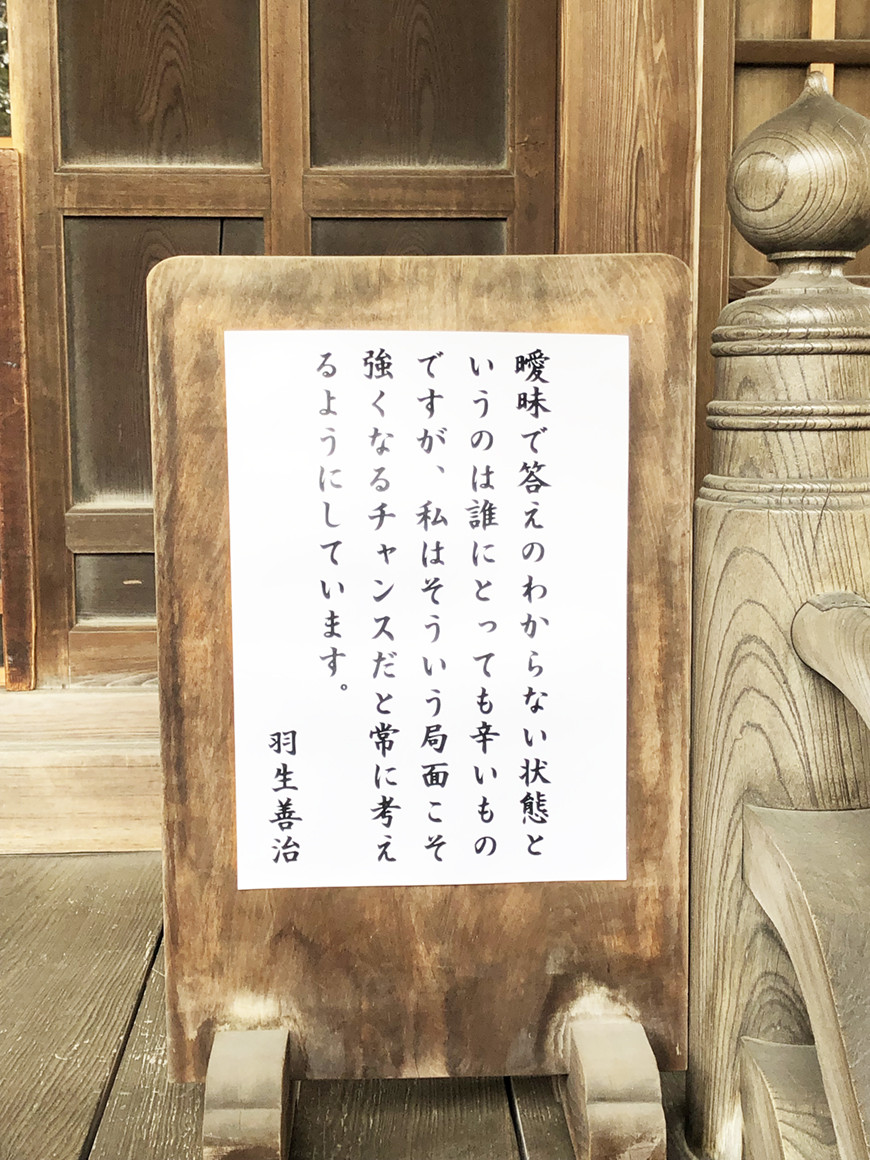 曖昧で答えのわからない状態と
いうのは誰にとっても辛いもの
ですが、私はそういう局面こそ
強くなるチャンスだと常に考え
るようにしています。
羽生善治